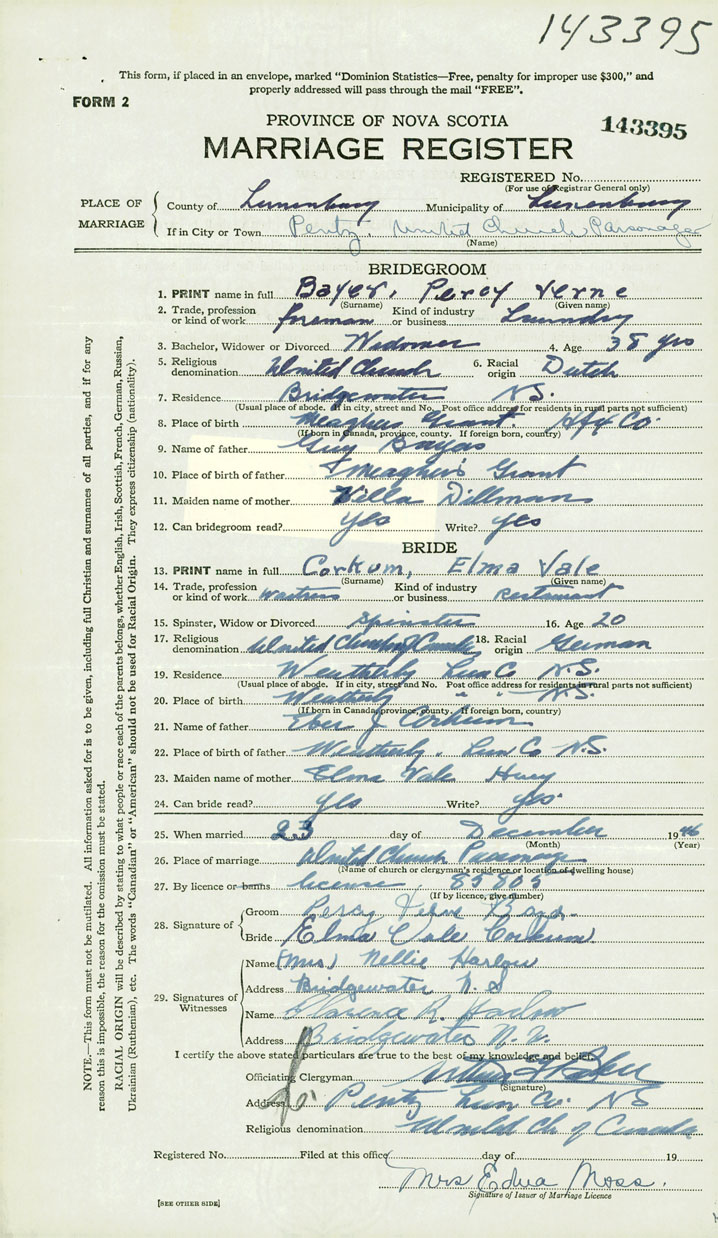 143395
This form, if placed in an envelope, marked "Dominion Statistics—Free, penalty for improper use $300," and
properly addressed will pass through the mail "FREE".
FORM 2
PROVINCE OF NOVA SCOTIA
143395
MARRIAGE REGISTER
REGISTERED No.
(For use of Registrar General only)
PLACE OF MARRIAGE
County of Lunenburg Municipality of Lunenburg
If in City or Town Pentz, United Church Parsonage
(Name)
BRIDEGROOM
1. PRINT name in full Bayer, Percy Verne
(Surname) (Given name)
2. Trade, profession or kind of work foreman Kind of industry or business Laundry
3. Bachelor, Widower or Divorced Widower 4. Age 38 yrs
5. Religious denomination United Church 6. Racial origin Dutch
7. Residence Bridgewater NS.
(Usual place of abode. If in city, street and No. Post office address for residents in rural parts not sufficient)
8. Place of birth Meaghers Grant. Hfx Co.
(If born in Canada, province, county. If foreign born, country)
9. Name of father Guy Bayers
10. Place of birth of father Meaghers Grant
11. Maiden name of mother Villa Dillman
12. Can bridegroom read? Yes Write? Yes
BRIDE
13. PRINT name in full Corkum, Elma Vale
(Surname) (Given name)
14. Trade, profession or kind of work Waitress Kind of industry or business Restaurant
15. Spinster, Widow or Divorced Spinster 16. Age 20
17. Religious denomination United Church of Canada 18. Racial origin German
19. Residence Lun Co. N.S.
(Usual place of abode. If in city, street and No. Post office address for residents in rural parts not sufficient)
20. Place of birth " " N.S.
(If born in Canada, province, county. If foreign born, country)
21. Name of father Eber J Corkum
22. Place of birth of father Lun Co N.S.
23. Maiden name of mother Elma Vale
24. Can bride read? Yes Write? Yes.
25. When married 23 day of December 1946
(Month) (Year)
26. Place of marriage United Church Parsonage
(Name of church or clergyman's residence or location of dwelling house)
27. By licence or banns license 85805
(If by licence, give number)
28. Signature of
Groom Percy Vern
Bride Elma Vale Corkum.
29. Signatures of Witnesses
Name (Mrs) Nellie Harlow
Address Bridgewater N. S
Name Harlow
Address Bridgewater N. S.
I certify the above stated particulars are true to the best of my knowledge and belief.
Officiating Clergyman
(Signature)
Address Pentz Lun Co. NS
Religious denomination United Ch of Canada
Registered No. Filed at this office day of 19
Mrs Edna Moss.
Signature of Issuer of Marriage Licence
[SEE OTHER SIDE]
NOTE.—This form must not be mutilated. All information asked for is to be given, including full Christian and surnames of all parties, and if for any
reason this is impossible, the reason for the omission must be stated.
RACIAL ORIGIN will be described by stating to what people or race each of the parents belongs, whether English, Irish, Scottish, French, German, Russian,
Ukrainian (Ruthenian), etc. The words "Canadian" or "American" should not be used for Racial Origin. They express citizenship (nationality).